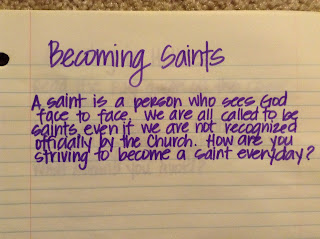 Becoming Saints
A saint is a person who sees God
face to face. We are all called to be
saints even if we are not recognized
officially by the Church. How are you
striving to become a saint everyday?